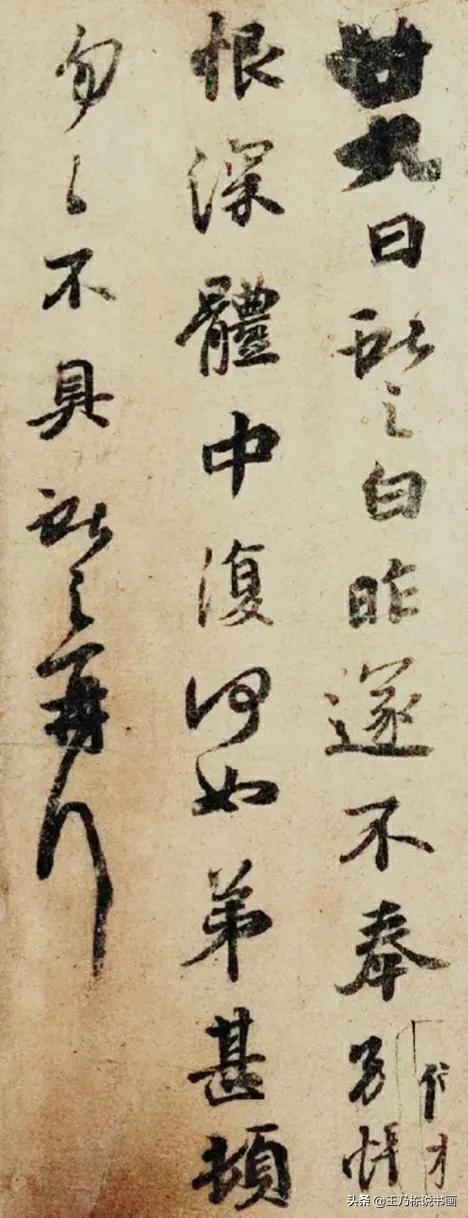 廿九日獻之白昨遂不奉別悵
恨深體中復何如弟甚頓
匆〻不具獻之再拜
头条 @王乃栋说书画